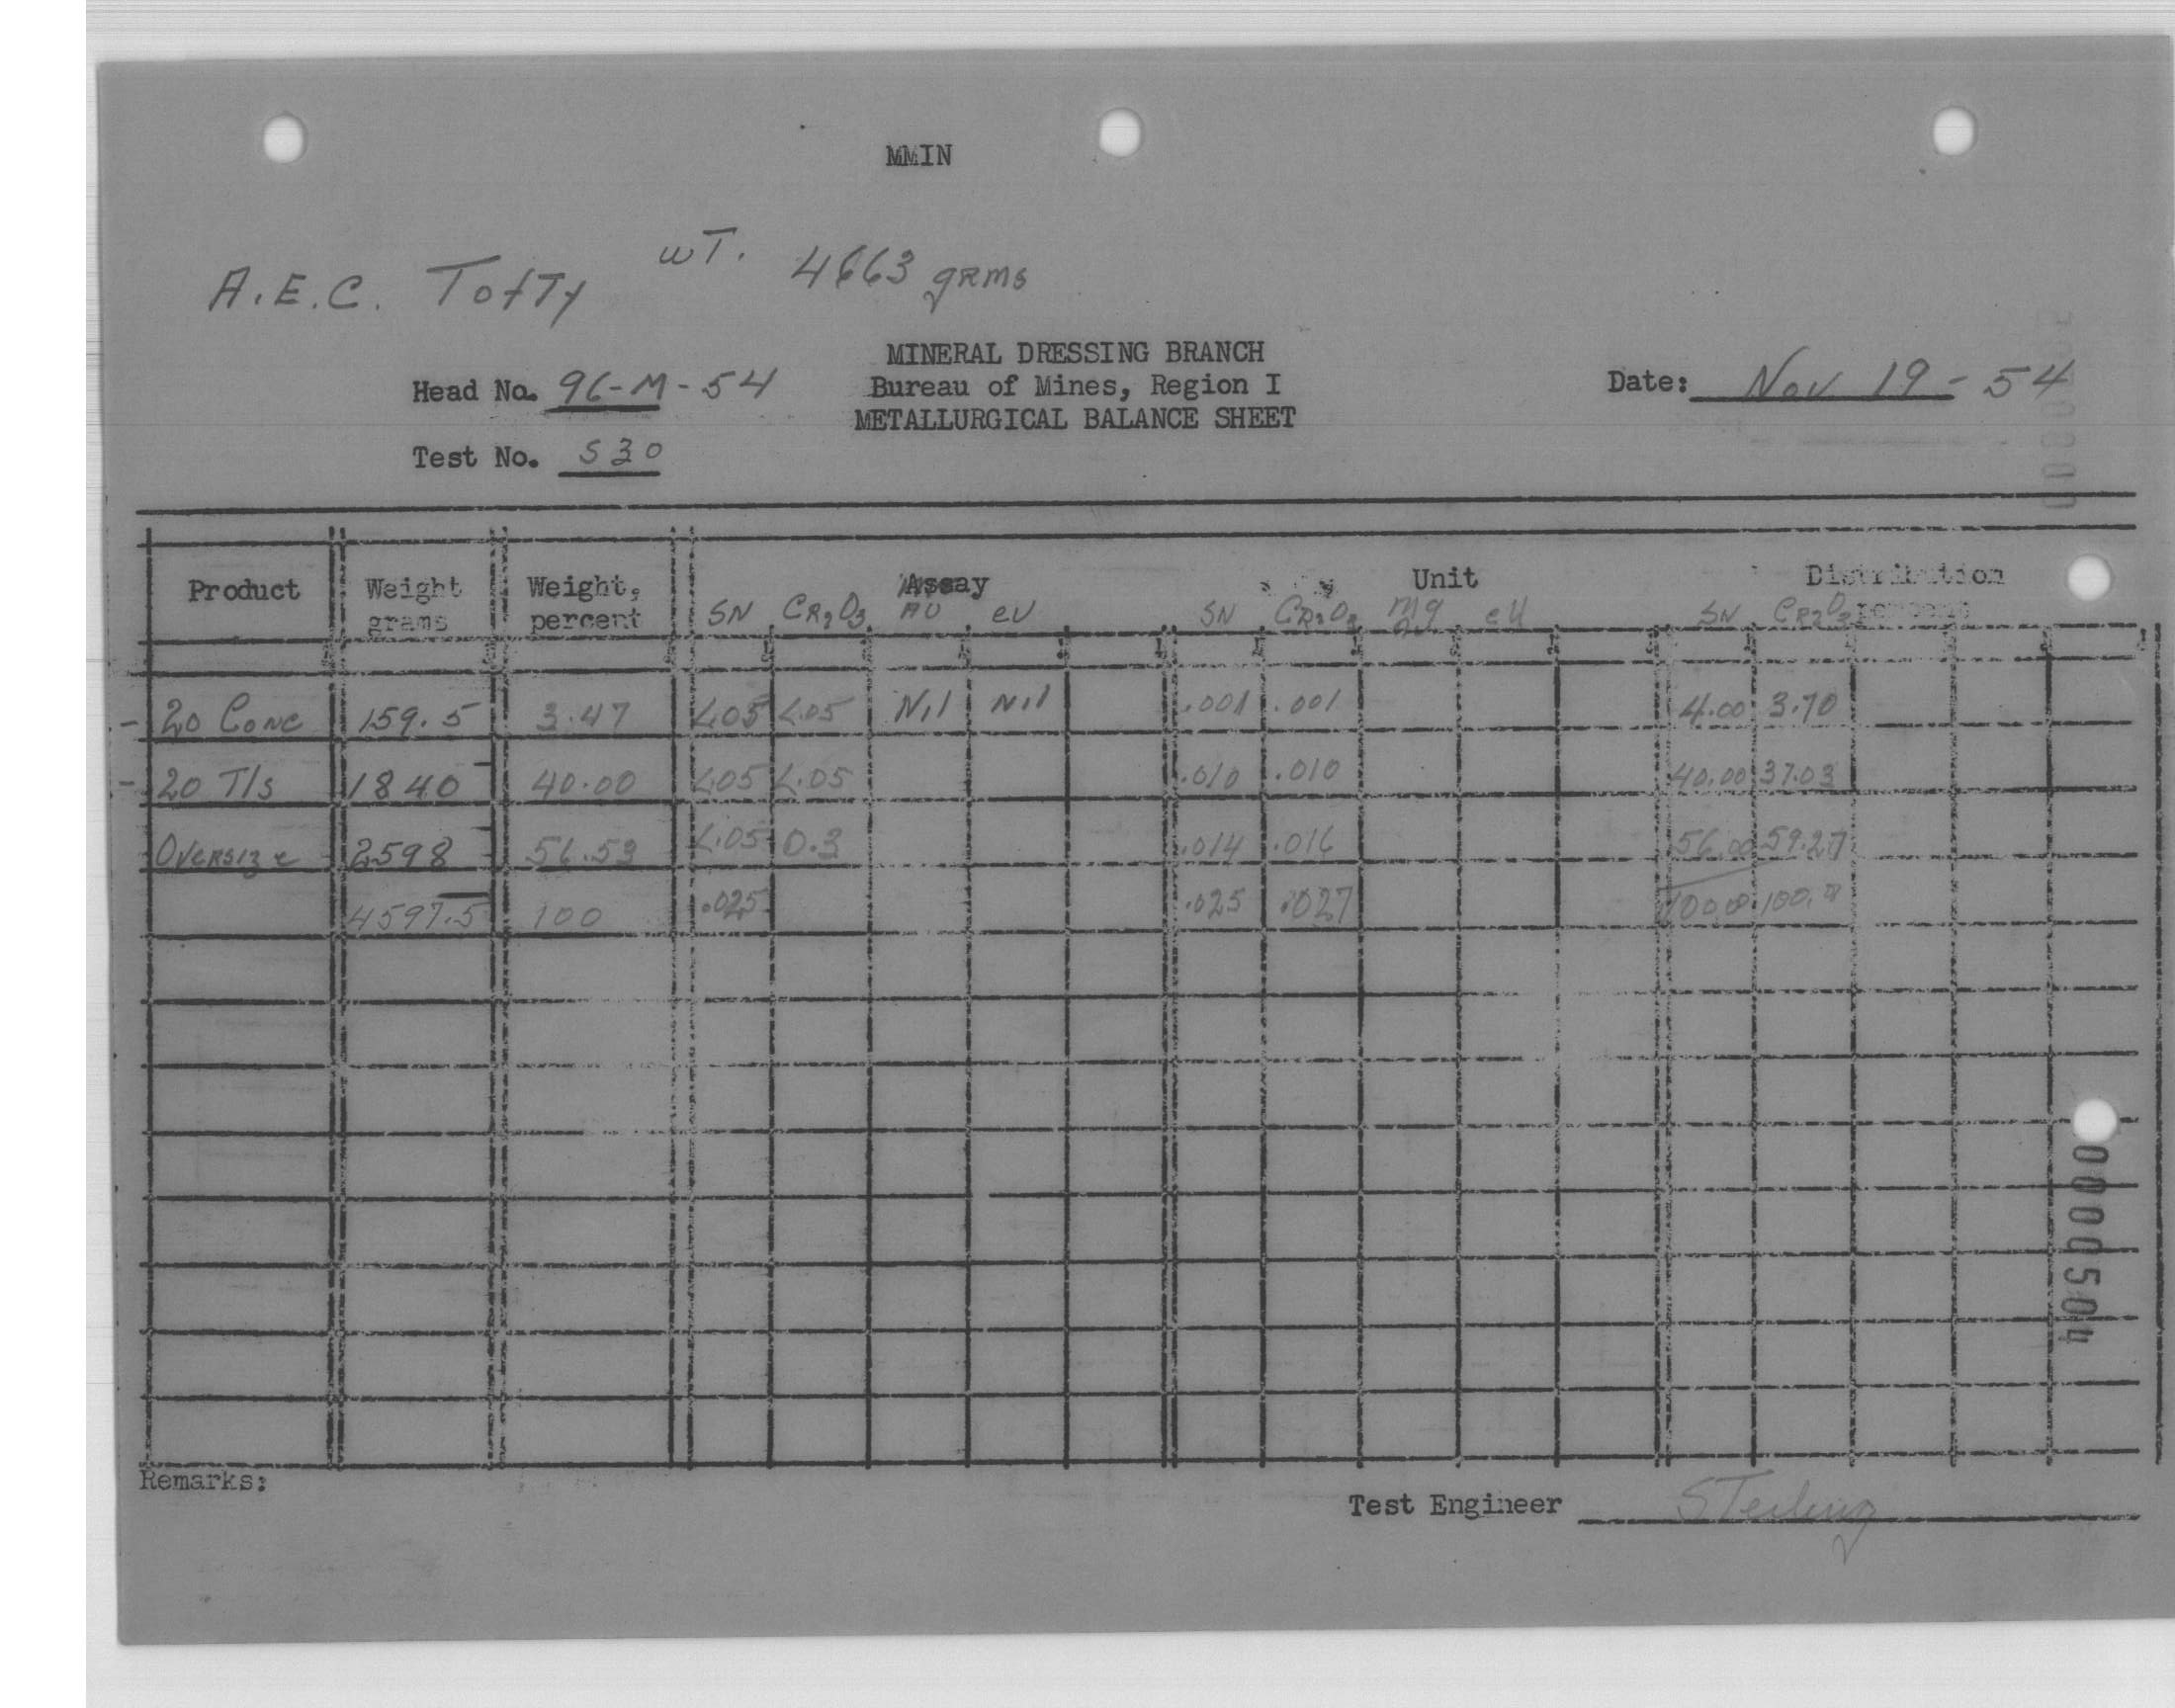 MMIN
A.E.C. Tofty wT. 4663 grms
MINERAL DRESSING BRANCH
Head No. 96-M-54 Bureau of Mines, Region I Date: Nov 19-54
METALLURGICAL BALANCE SHEET
Test No. S30
Product Weight grams Weight, percent Assay Unit Distribution percent
SN CR2O3 AU eU SN CR2O3 mg AU eU SN CR2O3
-20 Conc 159.5 3.47 <.05 <.05 Nil Nil .001 .001 4.00 3.70
-20 T/s 1840 40.00 <.05 <.05 .010 .010 40.00 37.03
Oversize 2598 56.53 <.05 0.3 .014 .016 56.00 59.27
4597.5 100 .025 .025 .027 100.00 100.00
0000504
Remarks:
Test Engineer Sterling